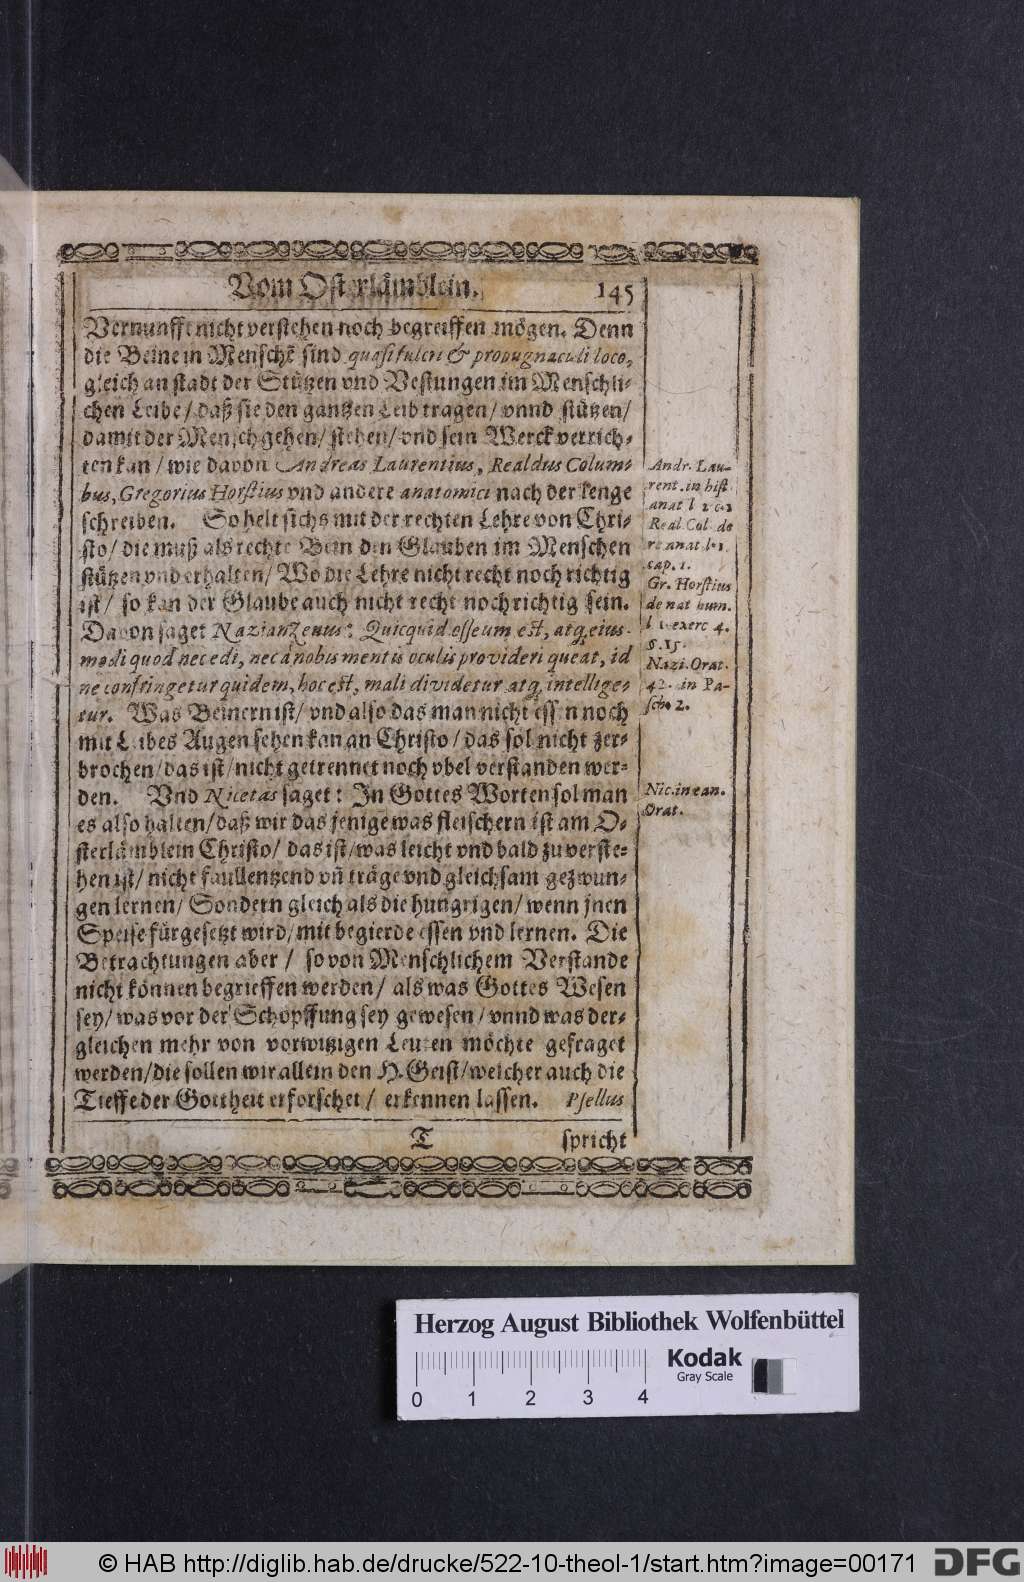 Vom Osterlämblein. 145
Vernunfft nicht verstehen noch begreiffen mögen. Denn
die Beine in Menschẽ sind quasi fulcri & propugnaculi loco,
gleich an stadt der Stützen vnd Vestungen im Menschli-
chen Leibe/ daß sie den gantzen Leib tragen/ vnnd stützen/
damit der Mensch gehen/ stehen/ vnd sein Werck verrich-
ten kan/ wie davon Andreas Laurentius, Realdus Colum-
bus, Gregorius Horstius vnd andere anatomici nach der lenge
schreiben. So helt sichs mit der rechten Lehre von Chri-
sto/ die muß als rechte Bein den Glauben im Menschen
stützen vnd erhalten/ Wo die Lehre nicht recht noch richtig
ist/ so kan der Glaube auch nicht recht noch richtig sein.
Davon saget Nazianzenus: Quicquid esseum est, atq; eius-
modi quod nec edi, nec à nobis mentis oculis provideri queat, id
ne confringetur quidem, hoc est, mali dividetur atq; intellige-
tur. Was Beinern ist/ vnd also das man nicht essen noch
mit Leibes Augen sehen kan an Christo/ das sol nicht zer-
brochen/ das ist/ nicht getrennet noch vbel verstanden wer-
den. Vnd Nicetas saget: In Gottes Worten sol man
es also halten/ daß wir das jenige was fleischern ist am O-
sterlämblein Christo/ das ist/ was leicht vnd bald zu verste-
hen ist/ nicht faullentzend vñ träge vnd gleichsam gezwun-
gen lernen/ Sondern gleich als die hungrigen/ wenn jnen
Speise fürgesetzt wird/ mit begierde essen vnd lernen. Die
Betrachtungen aber/ so von Menschlichem Verstande
nicht können begrieffen werden/ als was Gottes Wesen
sey/ was vor der Schöpffung sey gewesen/ vnnd was der-
gleichen mehr von vorwitzigen Leuten möchte gefraget
werden/ die sollen wir allein den H. Geist/ welcher auch die
Tieffe der Gottheit erforschet/ erkennen lassen. Psellus
T spricht
Andr. Lau-
rent. in hist.
anat l 2 c.2
Real Col de
re anat. l.1.
cap. 1.
Gr. Horstius
de nat hum.
l exerc 4.
q. 15.
Nazi. Orat.
42. in Pa-
sch. 2.
Nic. in ean.
Orat.
Herzog August Bibliothek Wolfenbüttel
Kodak
Gray Scale
0 1 2 3 4
© HAB http://diglib.hab.de/drucke/522-10-theol-1/start.htm?image=00171
DFG